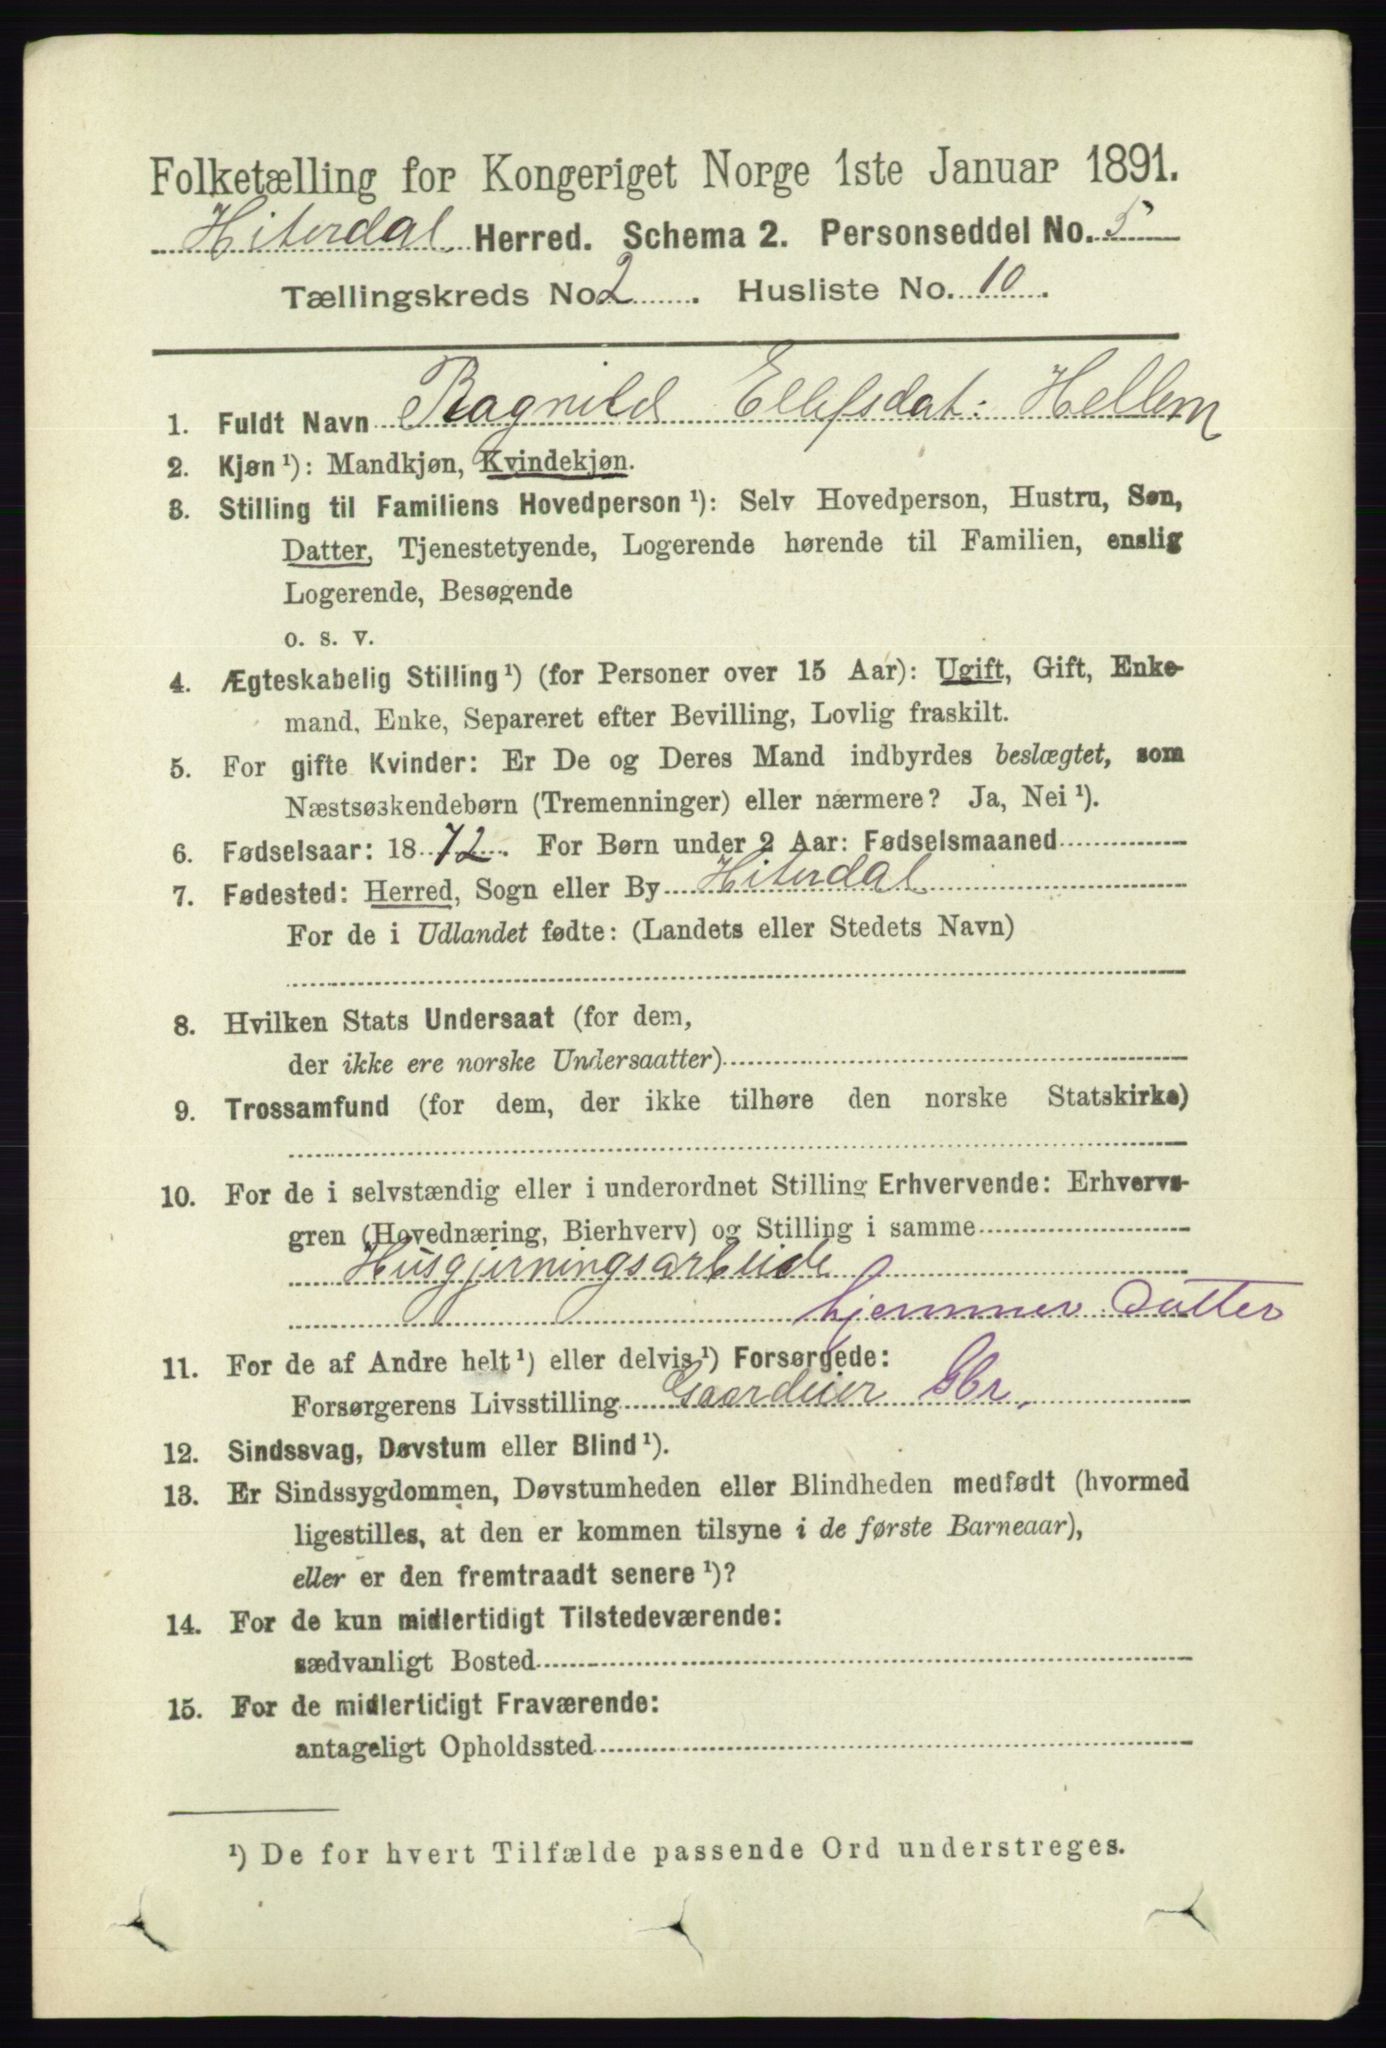 Folketælling for Kongeriget Norge 1ste Januar 1891.
Hiterdal Herred. Schema 2. Personseddel No. 5
Tællingskreds No. 2. Husliste No. 10.
1. Fuldt Navn Ragnild Ellefsdat: Hellem
2. Kjøn¹): Mandkjøn, Kvindekjøn.
3. Stilling til Familiens Hovedperson¹): Selv Hovedperson, Hustru, Søn,
Datter, Tjenestetyende, Logerende hørende til Familien, enslig
Logerende, Besøgende
o. s. v.
4. Ægteskabelig Stilling¹) (for Personer over 15 Aar): Ugift, Gift, Enke-
mand, Enke, Separeret efter Bevilling, Lovlig fraskilt.
5. For gifte Kvinder: Er De og Deres Mand indbyrdes beslægtet, som
Næstsøskendebørn (Tremenninger) eller nærmere? Ja, Nei¹).
6. Fødselsaar: 1872. For Børn under 2 Aar: Fødselsmaaned
7. Fødested: Herred, Sogn eller By Hiterdal
For de i Udlandet fødte: (Landets eller Stedets Navn)
8. Hvilken Stats Undersaat (for dem,
der ikke ere norske Undersaatter)
9. Trossamfund (for dem, der ikke tilhøre den norske Statskirke)
10. For de i selvstændig eller i underordnet Stilling Erhvervende: Erhvervs-
gren (Hovednæring, Bierhverv) og Stilling i samme
Husgjerningsarbeide
hjemmev. Datter
11. For de af Andre helt¹) eller delvis¹) Forsørgede:
Forsørgerens Livsstilling Gaardeier Gbr.
12. Sindssvag, Døvstum eller Blind¹).
13. Er Sindssygdommen, Døvstumheden eller Blindheden medfødt (hvormed
ligestilles, at den er kommen tilsyne i de første Barneaar),
eller er den fremtraadt senere¹)?
14. For de kun midlertidigt Tilstedeværende:
sædvanligt Bosted
15. For de midlertidigt Fraværende:
antageligt Opholdssted
¹) De for hvert Tilfælde passende Ord understreges.